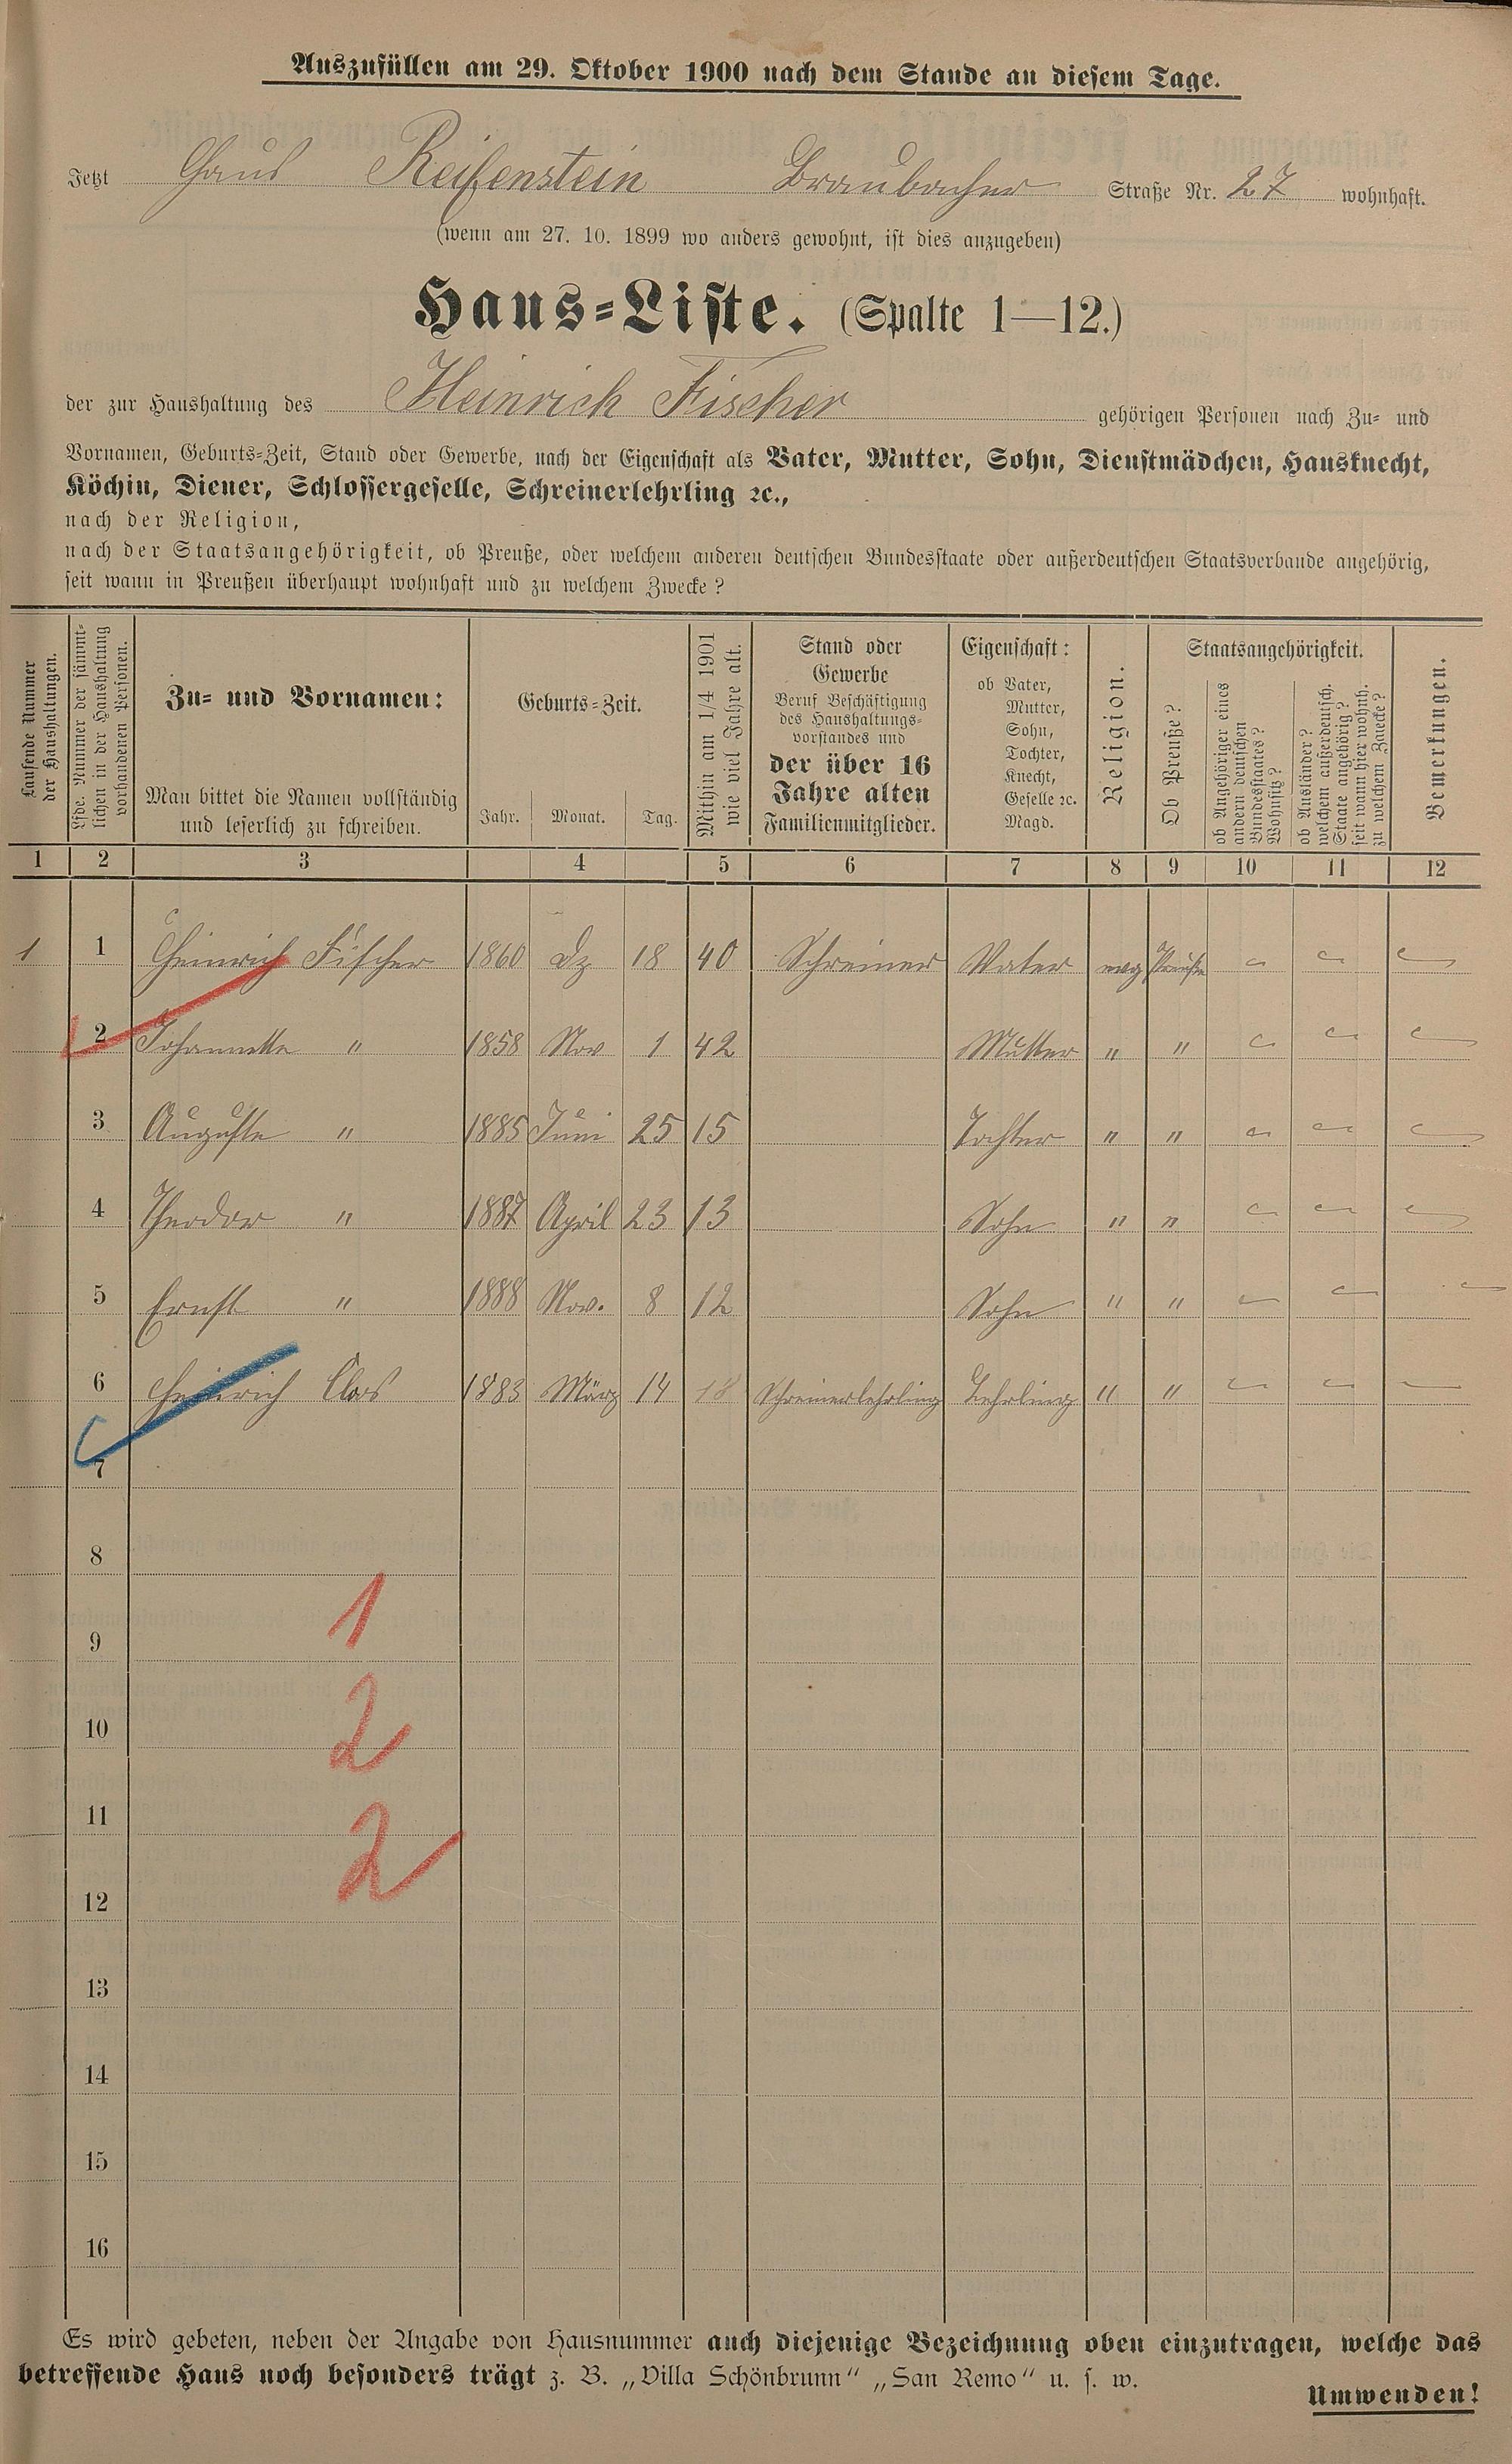 Auszufüllen am 29. Oktober 1900 nach dem Stande an diesem Tage.
Jetzt Haus Reifenstein Braubacher Straße Nr. 27 wohnhaft.
(wenn am 27. 10. 1899 wo anders gewohnt, ist dies anzugeben)
Haus-Liste. (Spalte 1—12.)
der zur Haushaltung des Heinrich Fischer gehörigen Personen nach Zu- und
Vornamen, Geburts-Zeit, Stand oder Gewerbe, nach der Eigenschaft als Vater, Mutter, Sohn, Dienstmädchen, Hausknecht,
Köchin, Diener, Schlossergeselle, Schreinerlehrling ꝛc.,
nach der Religion,
nach der Staatsangehörigkeit, ob Preuße, oder welchem anderen deutschen Bundesstaate oder außerdeutschen Staatsverbande angehörig,
seit wann in Preußen überhaupt wohnhaft und zu welchem Zwecke?
Laufende Nummer
der Haushaltungen.
Lfde. Nummer der sämmt-
lichen in der Haushaltung
vorhandenen Personen.
Zu- und Vornamen:
Man bittet die Namen vollständig
und leserlich zu schreiben.
Geburts-Zeit.
Jahr. Monat. Tag.
Mithin am 1/4 1901
wie viel Jahre alt.
Stand oder
Gewerbe
Beruf Beschäftigung
des Haushaltungs-
vorstandes und
der über 16
Jahre alten
Familienmitglieder.
Eigenschaft:
ob Vater,
Mutter,
Sohn,
Tochter,
Knecht,
Geselle ꝛc.
Magd.
Religion.
Staatsangehörigkeit.
Ob Preuße?
ob Angehöriger eines
andern deutschen
Bundesstaates?
Wohnsitz?
ob Ausländer?
welchem außerdeutsch.
Staate angehörig?
seit wann hier wohnh.
zu welchem Zwecke?
Bemerkungen.
1 2 3 4 5 6 7 8 9 10 11 12
1 1 Heinrich Fischer 1860 Dz 18 40 Schreiner Vater evg Preuße
2 Johannette " 1858 Nov 1 42 Mutter " "
3 Auguste " 1885 Juni 25 15 Tochter " "
4 Theodor " 1887 April 23 13 Sohn " "
5 Ernst " 1888 Nov. 8 12 Sohn " "
6 Heinrich Clos 1883 März 14 18 Schreinerlehrling Lehrling " "
7
8
1
9
2
10
11
2
12
13
14
15
16
Es wird gebeten, neben der Angabe von Hausnummer auch diejenige Bezeichnung oben einzutragen, welche das
betreffende Haus noch besonders trägt z. B. „Villa Schönbrunn“ „San Remo“ u. s. w.
Umwenden!